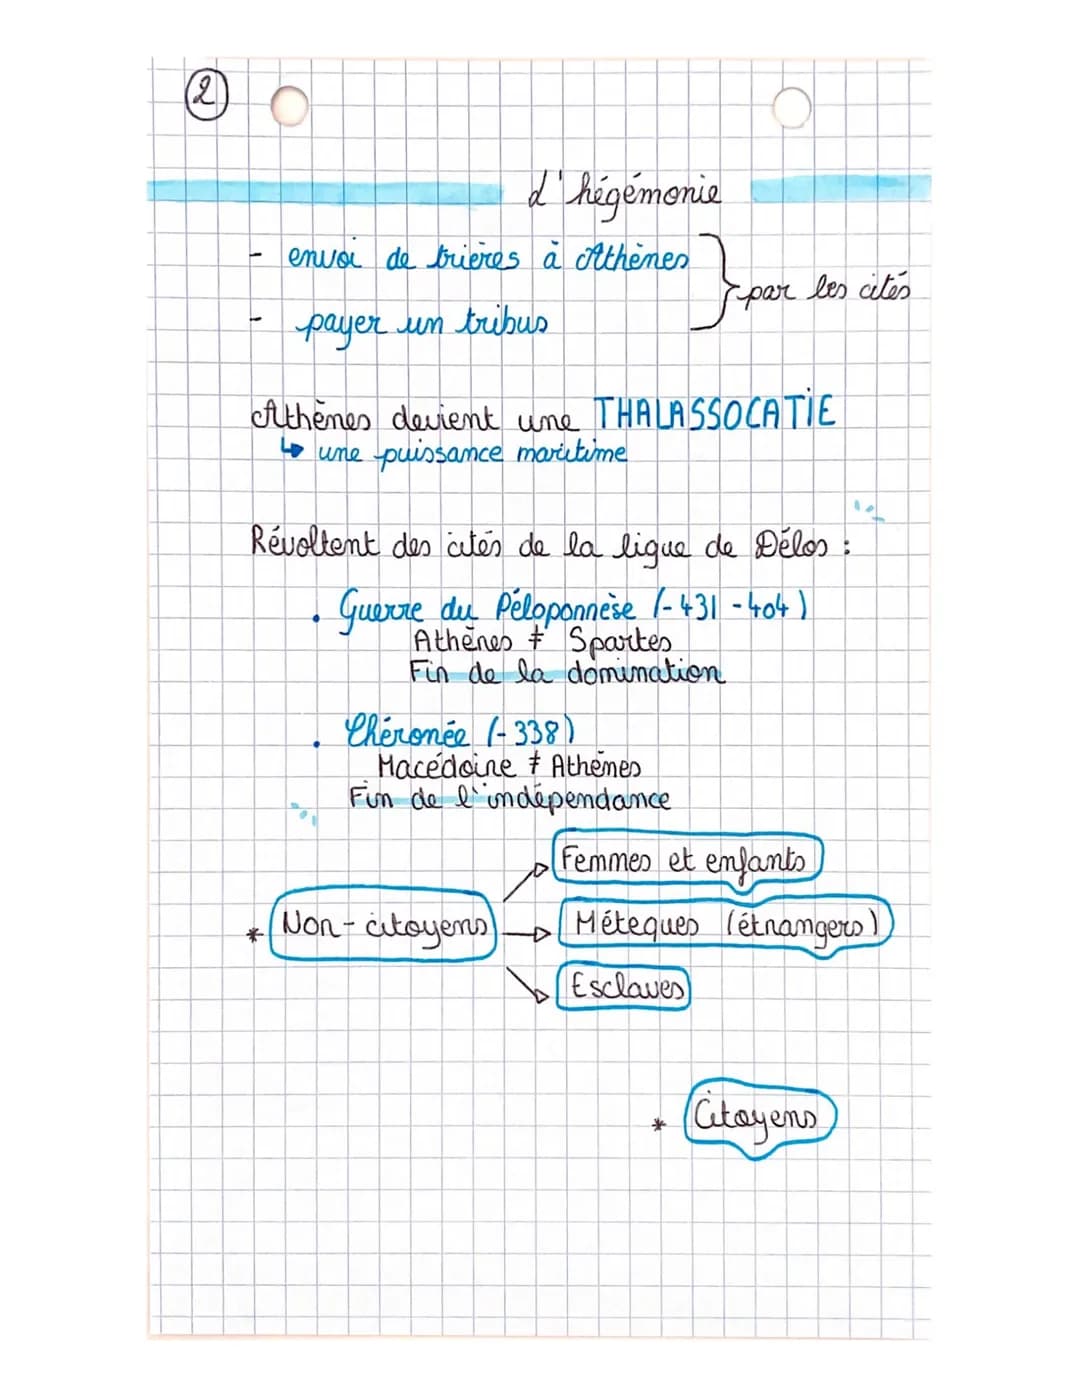 2
d'hégémonie
- envoi de trières à Athènes
par les cités
- payer un tribus
Athènes devient une THALASSOCATIE
↳ une puissance maritime
Révoltent des cités de la ligue de Délos :
. Guerre du Péloponnèse (-431 -404)
Athènes ≠ Spartes
Fin de la domination
. Chéronée (-338)
Macédoine ≠ Athènes
Fin de l'indépendance
Femmes et enfants
* Non-citoyens
Méteques (étrangers)
Esclaves
* Citoyens